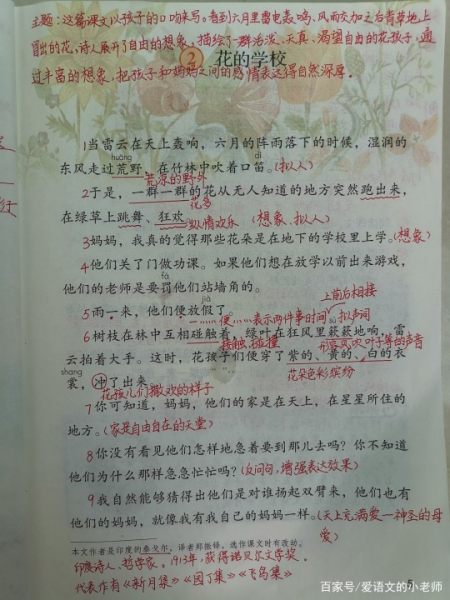 主题:这篇课文以孩子的口吻来写。看到六月里雷电轰鸣、风雨交加之后青草地上
冒出的花,诗人展开了自由的想象,描绘了一群活泼、天真、渴望自由的花孩子,通
过丰富的想象,把孩子和妈妈之间的感情表达得自然深厚。
2 花的学校
1当雷云在天上轰响,六月的阵雨落下的时候,湿润的
huāng dí
东风走过荒野,在竹林中吹着口笛。(拟人)
荒凉的野外
2于是,一群一群的花从无人知道的地方突然跑出来,
花多
在绿草上跳舞、狂欢。纵情欢乐 (想象、拟人)
3妈妈,我真的觉得那些花朵是在地下的学校里上学。(想象)
4他们关了门做功课。如果他们想在放学以前出来游戏,
fá
他们的老师是要罚他们站墙角的。
jià 上前后相接
5雨一来,他们便放假了。
一……便……表示两件事时间 sù 拟声词
6树枝在林中互相碰触着,绿叶在狂风里簌簌地响,雷
接触、碰撞 形容风吹叶子等的声音
云拍着大手。这时,花孩子们便穿了紫的、黄的、白的衣
shang
裳,冲了出来。 花朵色彩缤纷
花孩儿们撒欢的样子
7你可知道,妈妈,他们的家是在天上,在星星所住的
地方。(家是自由自在的天堂)
8你没有看见他们怎样地急着要到那儿去吗?你不知道
他们为什么那样急急忙忙吗?(反问句,增强表达效果)
9我自然能够猜得出他们是对谁扬起双臂来,他们也有
他们的妈妈,就像我有我自己的妈妈一样。(天上充满爱一神圣的母
爱)
本文作者是印度的泰戈尔,译者郑振铎,选作课文时有改动。
印度诗人、哲学家,1913年,获得诺贝尔文学奖。
代表作有《新月集》《园丁集》《飞鸟集》
5
百家号/爱语文的小老师